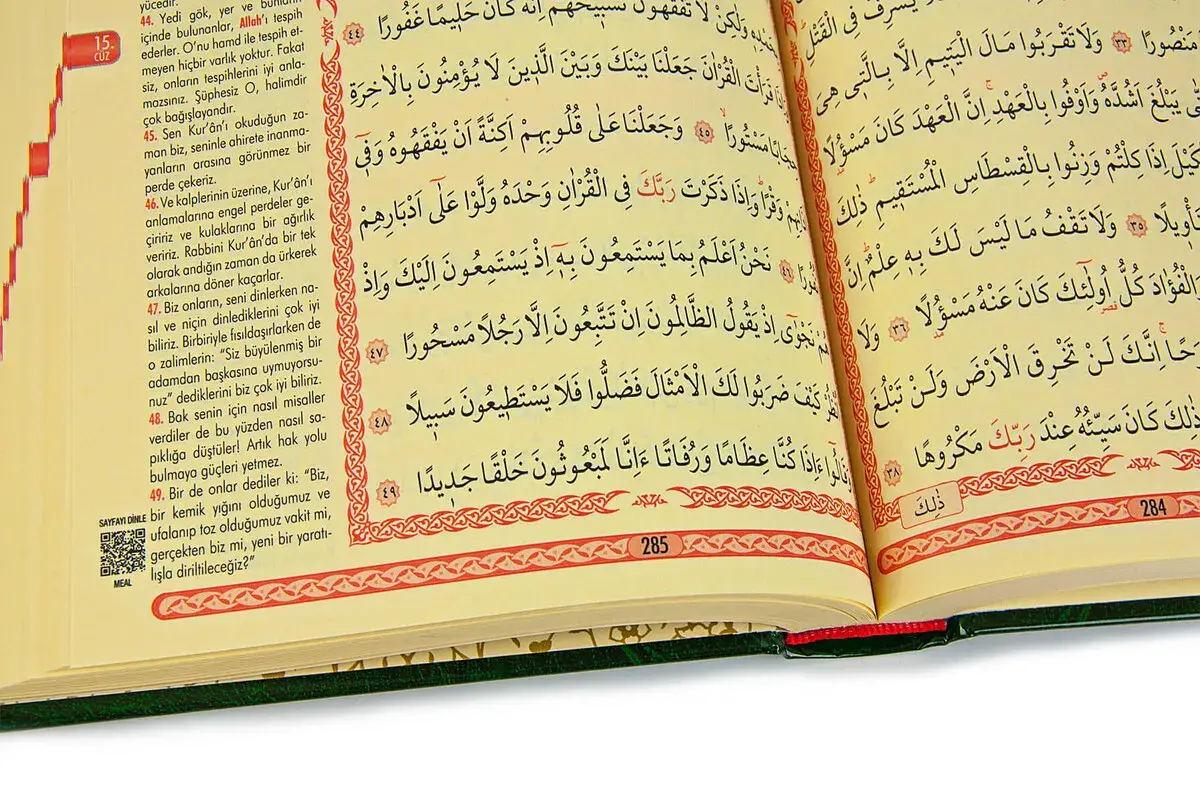 yücedir.
44. Yedi gök, yer ve bunların
içinde bulunanlar, Allah'ı tespih
ederler. O'nu hamd ile tespih et-
meyen hiçbir varlık yoktur. Fakat
siz, onların tespihlerini iyi anla-
mazsınız. Şüphesiz O, halimdir
çok bağışlayandır.
45. Sen Kur'ân'ı okuduğun za-
man biz, seninle ahirete inanma-
yanların arasına görünmez bir
perde çekeriz.
46. Ve kalplerinin üzerine, Kur'ân'ı
anlamalarına engel perdeler ge-
çiririz ve kulaklarına bir ağırlık
veririz. Rabbini Kur'ân'da bir tek
olarak andığın zaman da ürkerek
arkalarına döner kaçarlar.
47. Biz onların, seni dinlerken na-
sıl ve niçin dinlediklerini çok iyi
biliriz. Birbiriyle fısıldaşırlarken de
o zalimlerin: "Siz büyülenmiş bir
adamdan başkasına uymuyorsu-
nuz" dediklerini biz çok iyi biliriz.
48. Bak senin için nasıl misaller
verdiler de bu yüzden nasıl sa-
pıklığa düştüler! Artık hak yolu
bulmaya güçleri yetmez.
49. Bir de onlar dediler ki: "Biz,
bir kemik yığını olduğumuz ve
ufalanıp toz olduğumuz vakit mi,
gerçekten biz mi, yeni bir yaratı-
lışla diriltileceğiz?"
15.
CÜZ
SAYFAYI DİNLE
MEAL
وَلٰكِنْ لَا تَفْقَهُونَ تَسْبٖيحَهُمْ اِنَّهُ كَانَ حَلٖيمًا غَفُورًا ٤٤
قَرَأْتَ الْقُرْاٰنَ جَعَلْنَا بَيْنَكَ وَبَيْنَ الَّذٖينَ لَا يُؤْمِنُونَ بِالْاٰخِرَةِ
مَسْتُورًا ٤٥ وَجَعَلْنَا عَلٰى قُلُوبِهِمْ اَكِنَّةً اَنْ يَفْقَهُوهُ وَفٖٓى
وَقْرًا وَاِذَا ذَكَرْتَ رَبَّكَ فِى الْقُرْاٰنِ وَحْدَهُ وَلَّوْا عَلٰٓى اَدْبَارِهِمْ
٤٦ نَحْنُ اَعْلَمُ بِمَا يَسْتَمِعُونَ بِهٖٓ اِذْ يَسْتَمِعُونَ اِلَيْكَ وَاِذْ
هُمْ نَجْوٰٓى اِذْ يَقُولُ الظَّالِمُونَ اِنْ تَتَّبِعُونَ اِلَّا رَجُلًا مَسْحُورًا ٤٧
كَيْفَ ضَرَبُوا لَكَ الْاَمْثَالَ فَضَلُّوا فَلَا يَسْتَطٖيعُونَ سَبٖيلًا ٤٨
وَقَالُٓوا ءَاِذَا كُنَّا عِظَامًا وَرُفَاتًا ءَاِنَّا لَمَبْعُوثُونَ خَلْقًا جَدٖيدًا ٤٩
285
يُسْرِفْ فِى الْقَتْلِ
مَنْصُورًا ٣٣ وَلَا تَقْرَبُوا مَالَ الْيَتٖيمِ اِلَّا بِالَّتٖى هِىَ
يَبْلُغَ اَشُدَّهُ وَاَوْفُوا بِالْعَهْدِ اِنَّ الْعَهْدَ كَانَ مَسْؤُلًا
الْكَيْلَ اِذَا كِلْتُمْ وَزِنُوا بِالْقِسْطَاسِ الْمُسْتَقٖيمِ ذٰلِكَ
تَأْوٖيلًا ٣٥ وَلَا تَقْفُ مَا لَيْسَ لَكَ بِهٖ عِلْمٌ اِنَّ
وَالْفُؤَادَ كُلُّ اُولٰٓئِكَ كَانَ عَنْهُ مَسْؤُلًا ٣٦ وَلَا
مَرَحًا اِنَّكَ لَنْ تَخْرِقَ الْاَرْضَ وَلَنْ تَبْلُغَ
ذٰلِكَ كَانَ سَيِّئُهُ عِنْدَ رَبِّكَ مَكْرُوهًا ٣٨
ذٰلِكَ
284